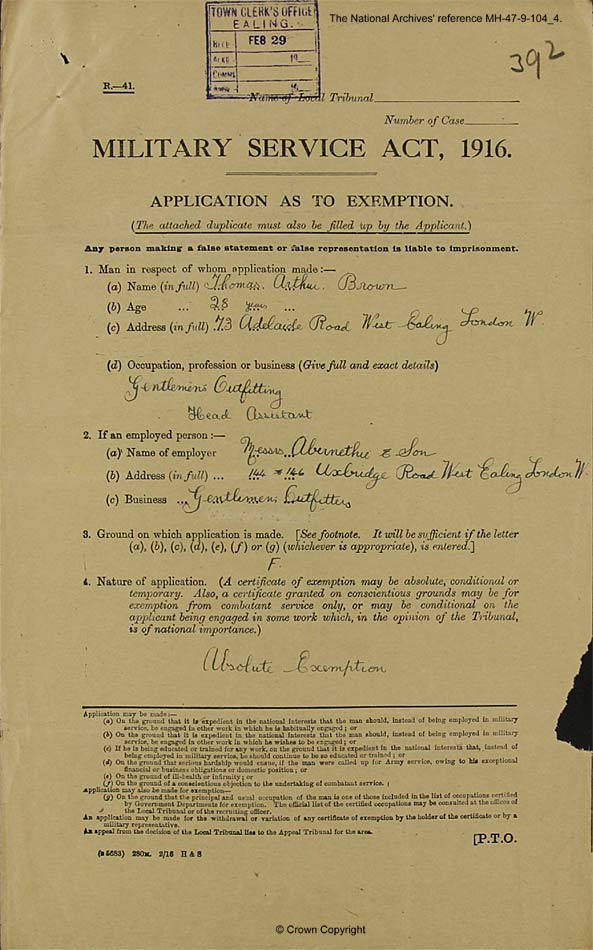 The National Archives' reference MH-47-9-104_4.
TOWN CLERK'S OFFICE
EALING.
FEB 29
392
R.—41.
Name of Local Tribunal
Number of Case
MILITARY SERVICE ACT, 1916.
APPLICATION AS TO EXEMPTION.
(The attached duplicate must also be filled up by the Applicant.)
Any person making a false statement or false representation is liable to imprisonment.
1. Man in respect of whom application made :—
(a) Name (in full) Thomas. Arthur. Brown
(b) Age ... 28 years ...
(c) Address (in full) 73 Adelaide Road West Ealing London W.
(d) Occupation, profession or business (Give full and exact details)
Gentlemens Outfitting
Head Assistant
2. If an employed person :—
(a) Name of employer Messrs Abernethie & Son
(b) Address (in full) ... 144 & 146 Uxbridge Road West Ealing London W.
(c) Business ... Gentlemens Outfitters
3. Ground on which application is made. [See footnote. It will be sufficient if the letter
(a), (b), (c), (d), (e), (f) or (g) (whichever is appropriate), is entered.]
F.
4. Nature of application. (A certificate of exemption may be absolute, conditional or
temporary. Also, a certificate granted on conscientious grounds may be for
exemption from combatant service only, or may be conditional on the
applicant being engaged in some work which, in the opinion of the Tribunal,
is of national importance.)
Absolute Exemption
Application may be made :—
(a) On the ground that it is expedient in the national interests that the man should, instead of being employed in military
service, be engaged in other work in which he is habitually engaged ; or
(b) On the ground that it is expedient in the national interests that the man should, instead of being employed in military
service, be engaged in other work in which he wishes to be engaged ; or
(c) If he is being educated or trained for any work, on the ground that it is expedient in the national interests that, instead of
being employed in military service, he should continue to be so educated or trained ; or
(d) On the ground that serious hardship would ensue, if the man were called up for Army service, owing to his exceptional
financial or business obligations or domestic position ; or
(e) On the ground of ill-health or infirmity ; or
(f) On the ground of a conscientious objection to the undertaking of combatant service.
Application may also be made for exemption—
(g) On the ground that the principal and usual occupation of the man is one of those included in the list of occupations certified
by Government Departments for exemption. The official list of the certified occupations may be consulted at the offices of
the Local Tribunal or of the recruiting officer.
An application may be made for the withdrawal or variation of any certificate of exemption by the holder of the certificate or by a
military representative.
An appeal from the decision of the Local Tribunal lies to the Appeal Tribunal for the area.
[P.T.O.
(B 5683) 280M. 2/16 H & S
© Crown Copyright